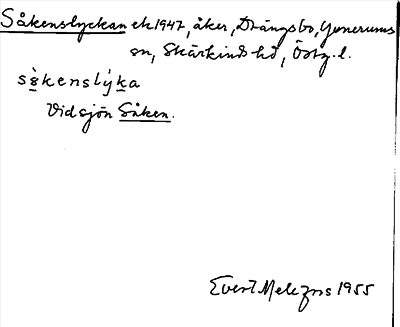 Såkenslyckan ek 1947, åker, Drängsbo, Yxnerums
sn, Skärkinds hd, Östg. l.
sə̀kenslýka
Vid sjön Såken.
Evert Melefors 1955